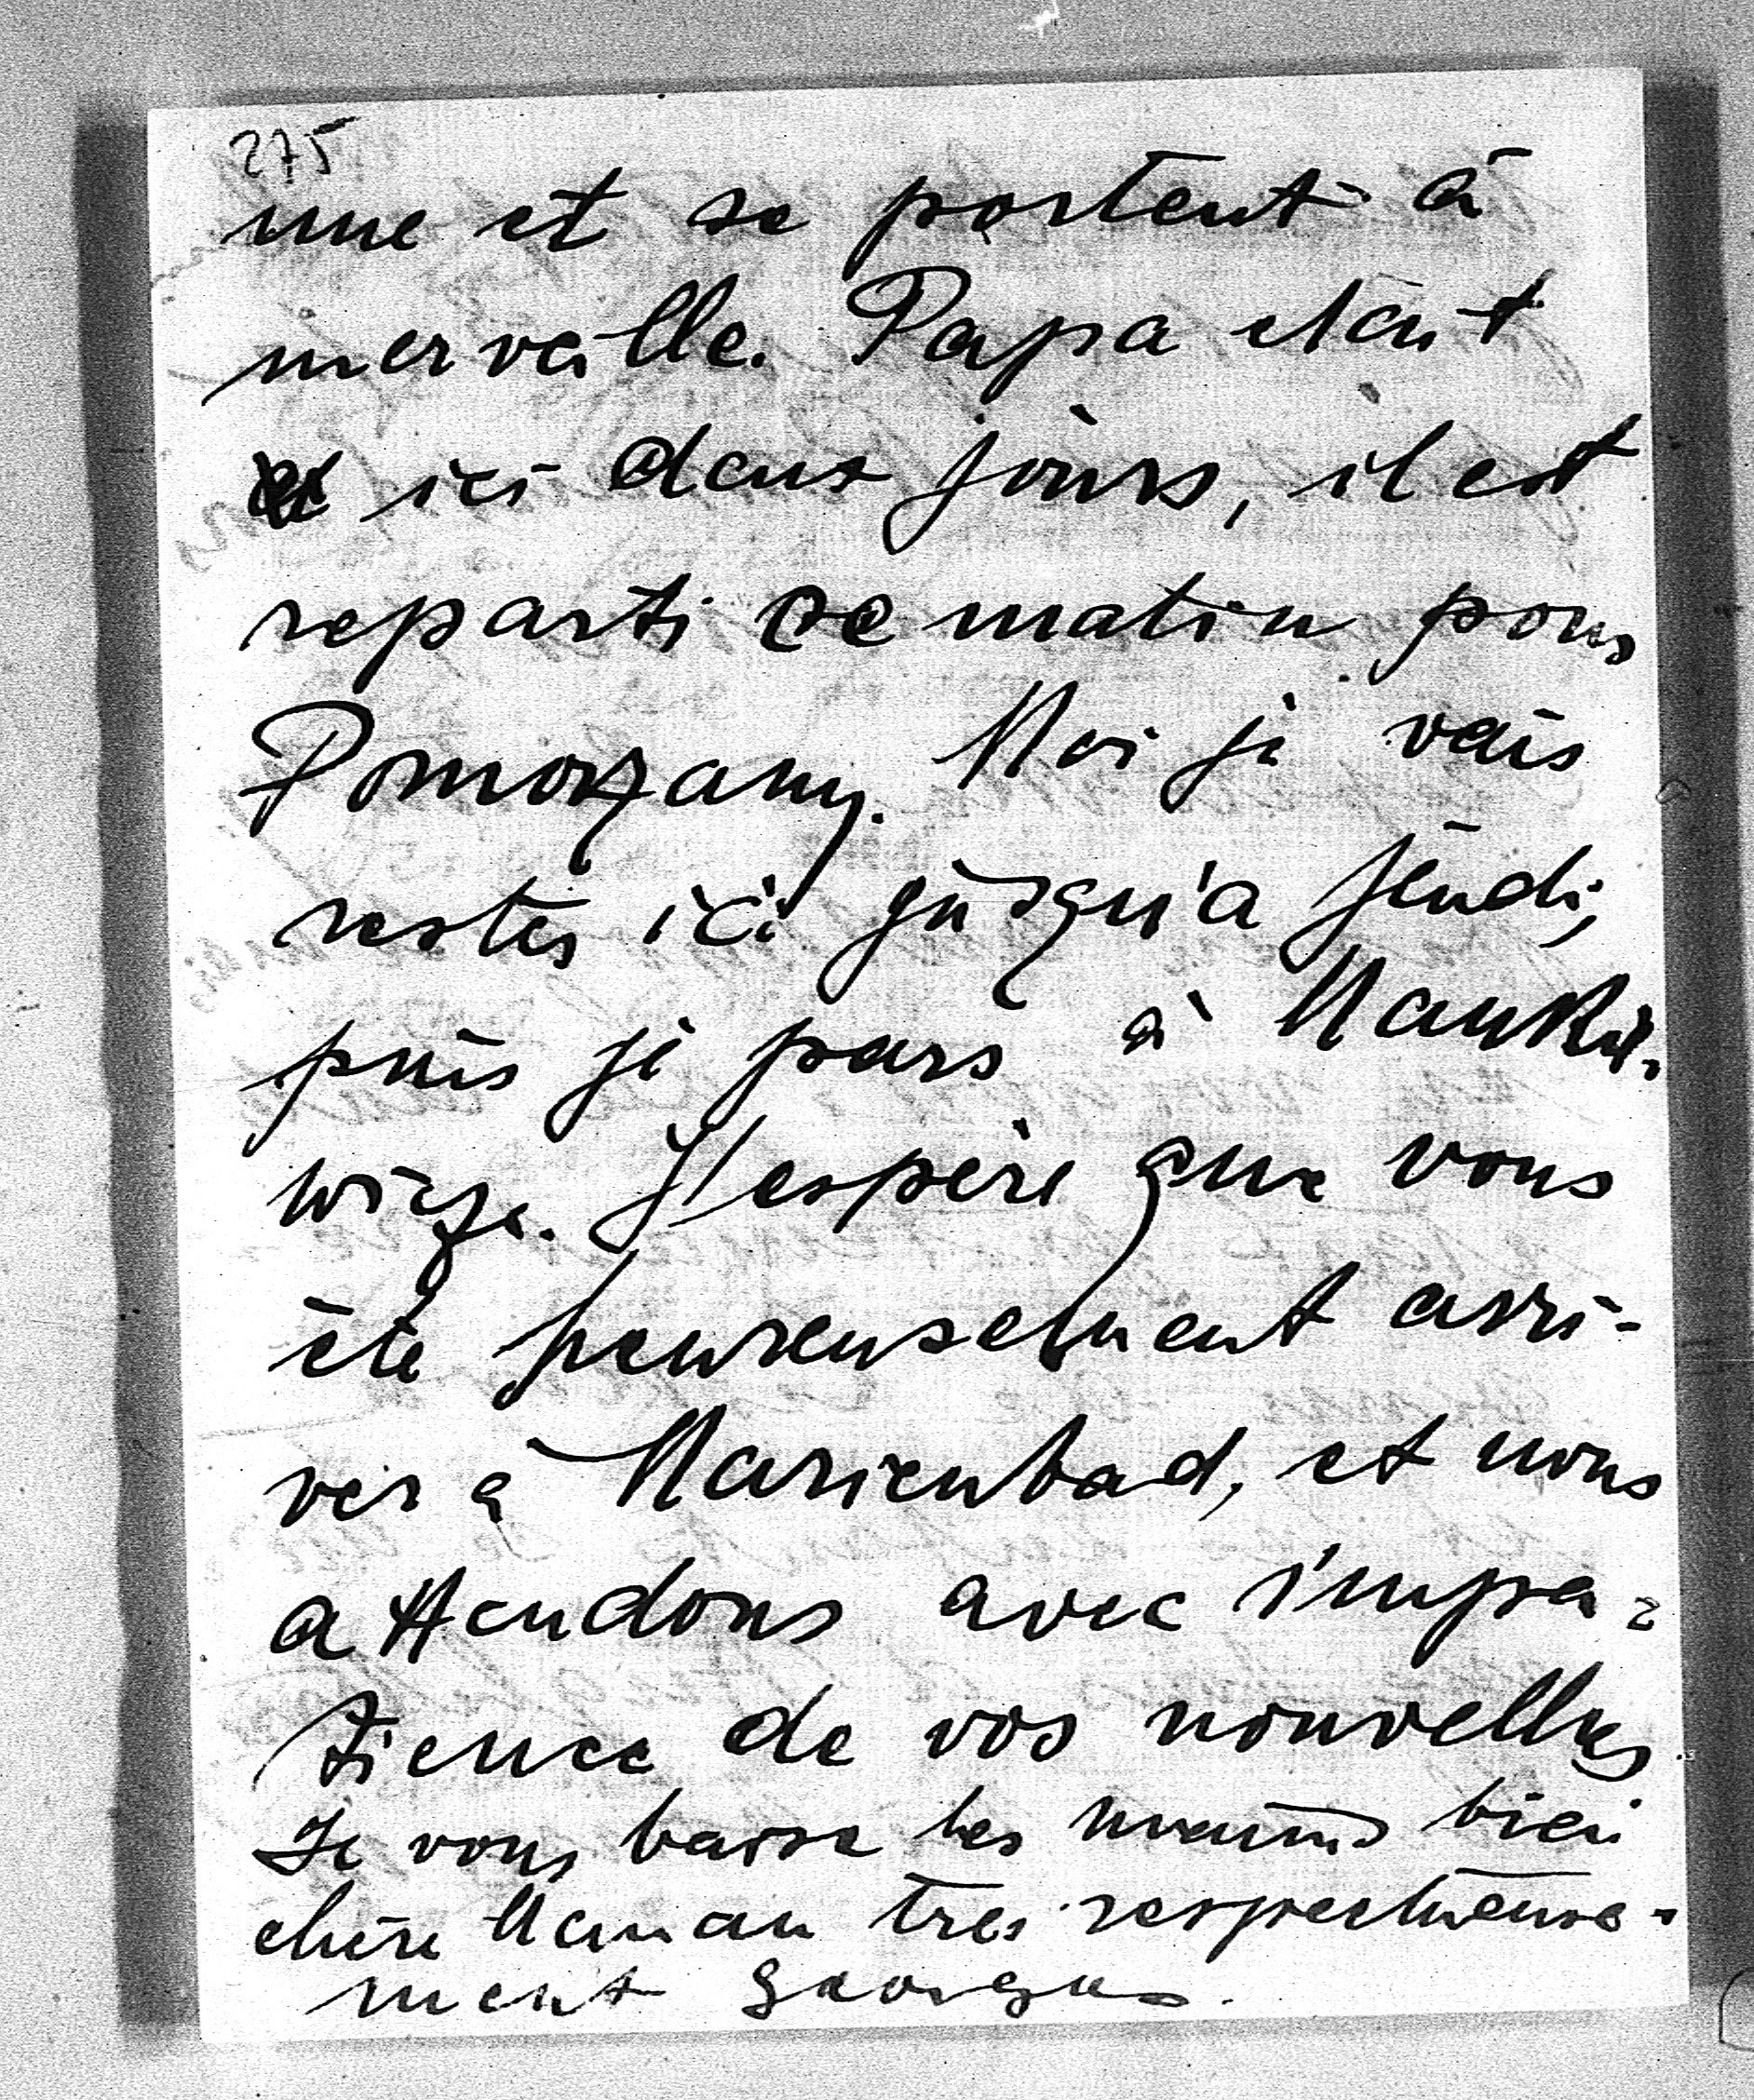 275
une et se portent à
merveille. Papa etait
ici deux jours, il est
reparti ce matin pour
Pomorzany. Moi je vais
rester ici jusqu'a jeudi,
puis je pars à Manku-
wicze. J'espère que vous
été heureusement arri-
ver à Marienbad, et nous
attendons avec impa-
tience de vos nouvelles
Je vous baise les mains bien
chère Maman très respectueuse-
ment Georges.